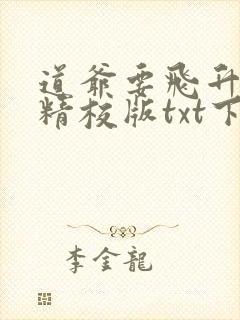 道爷要飛升
精校版txt下
李金龍